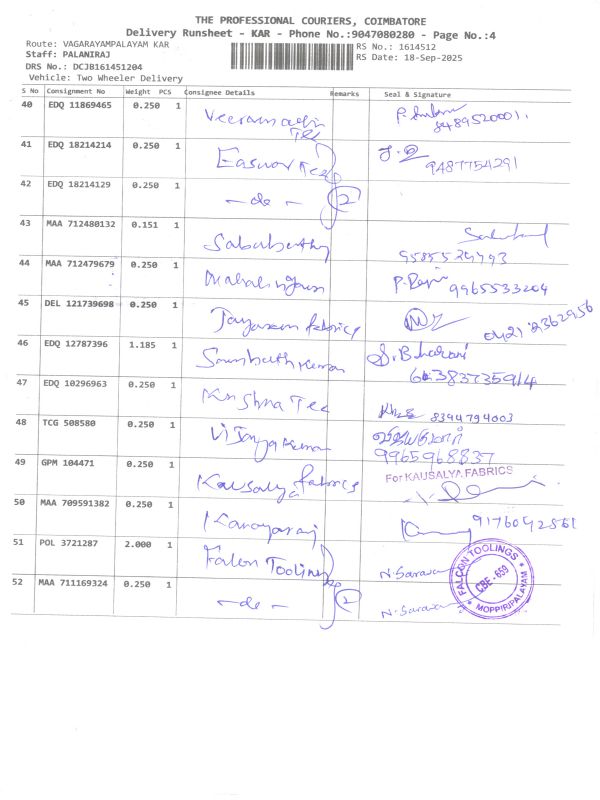 THE PROFESSIONAL COURIERS, COIMBATORE
Delivery Runsheet - KAR - Phone No.:9047080280 - Page No.:4
Route: VAGARAYAMPALAYAM KAR RS No.: 1614512
Staff: PALANIRAJ RS Date: 18-Sep-2025
DRS No.: DCJB161451204
Vehicle: Two Wheeler Delivery
S No Consignment No Weight PCS Consignee Details Remarks Seal & Signature
40 EDQ 11869465 0.250 1
8489520001
41 EDQ 18214214 0.250 1 Easwar Tex
9487754291
42 EDQ 18214129 0.250 1 - do - 2
43 MAA 712480132 0.151 1
44 MAA 712479679 0.250 1 9965533204
45 DEL 121739698 0.250 1 fabrics 0421 2362956
46 EDQ 12787396 1.185 1 S.Bharani
6383735914
47 EDQ 10296963 0.250 1 Krishna Tex
8394794003
48 TCG 508580 0.250 1 Vijayakumar விஜயகுமார்
9965968837
49 GPM 104471 0.250 1 Kausalya fabrics For KAUSALYA FABRICS
50 MAA 709591382 0.250 1 Kanagaraj
51 POL 3721287 2.000 1 Falcon Tooling N. Sarava
FALCON TOOLINGS
CBE - 659
MOPPIRIPALAYAM
52 MAA 711169324 0.250 1 - do - 2 N. Sarava